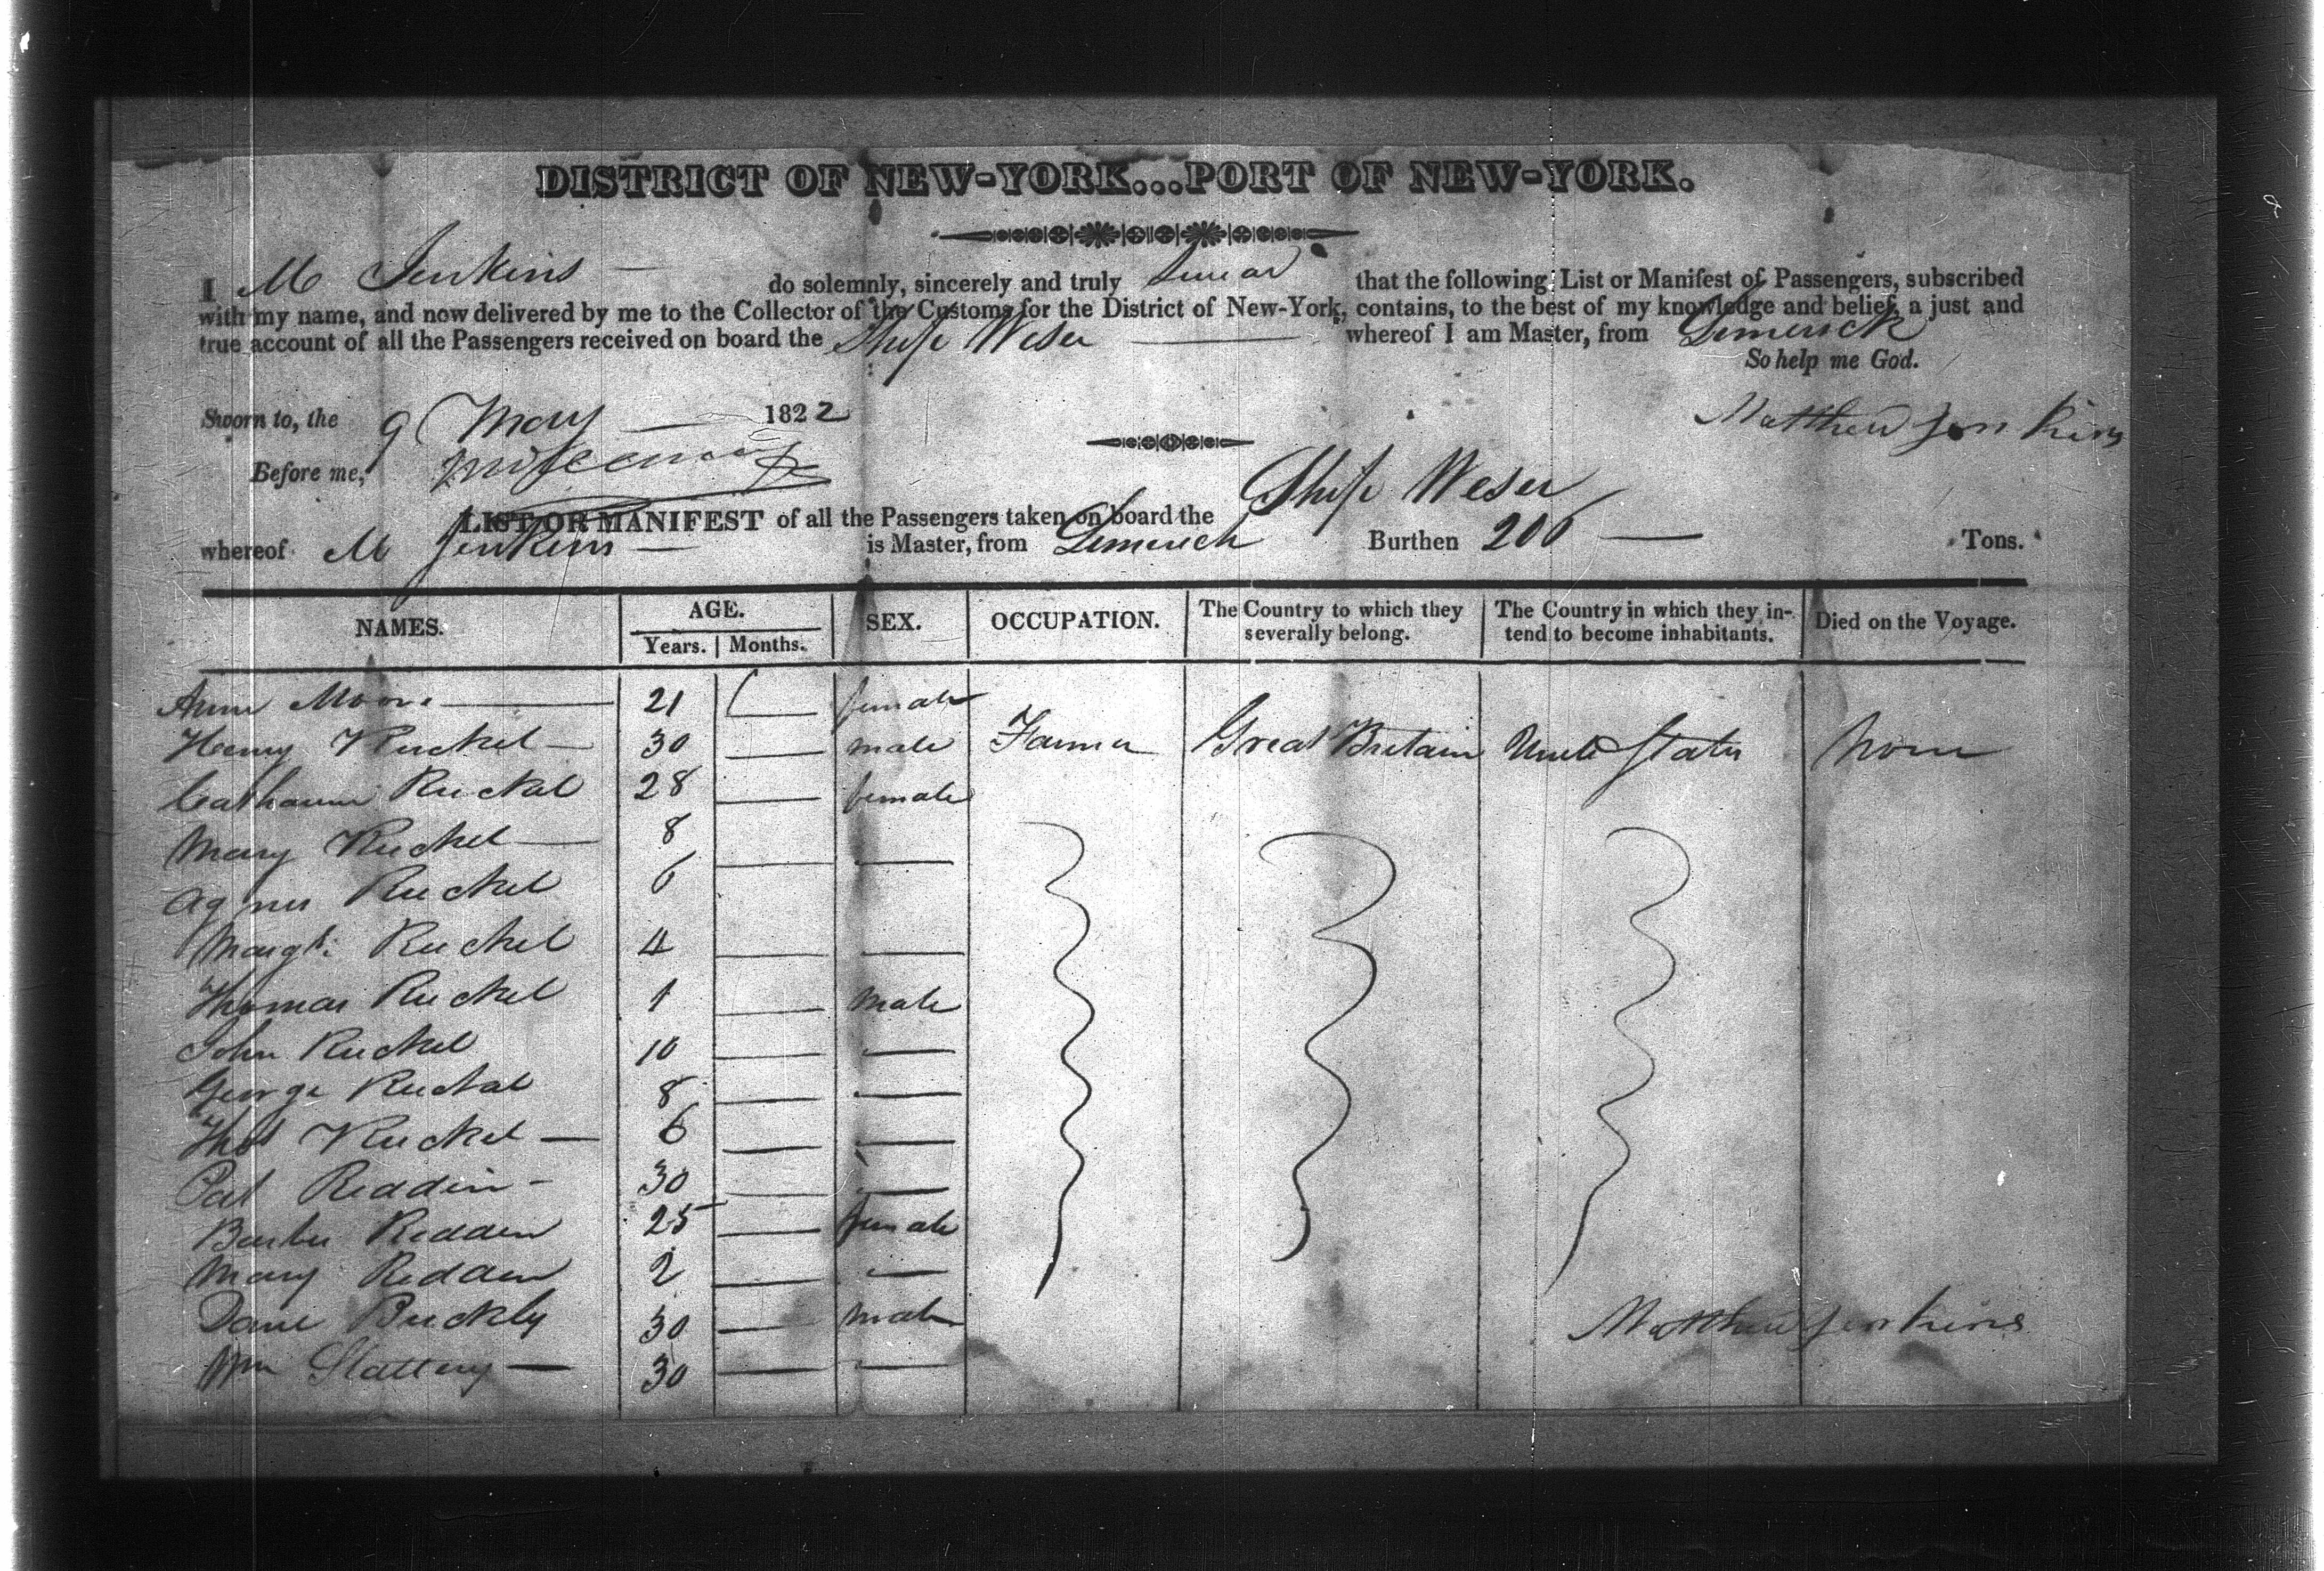 DISTRICT OF NEW-YORK...PORT OF NEW-YORK.
I M Jenkins do solemnly, sincerely and truly swear that the following List or Manifest of Passengers, subscribed
with my name, and now delivered by me to the Collector of the Customs for the District of New-York, contains, to the best of my knowledge and belief, a just and
true account of all the Passengers received on board the Ship Weser whereof I am Master, from Limerick
So help me God.
Sworn to, the 9 May 1822
Matthew Jenkins
Before me,
LIST OR MANIFEST of all the Passengers taken on board the Ship Weser
whereof M Jenkins is Master, from Limerick Burthen 206 Tons.
NAMES. AGE. Years. Months. SEX. OCCUPATION. The Country to which they severally belong. The Country in which they intend to become inhabitants. Died on the Voyage.
Anne Moore 21 female
Henry Ruckel 30 male Farmer Great Britain United States None
Catharine Ruckel 28 female
Mary Ruckel 8
Agnes Ruckel 6
Margt. Ruckel 4
Thomas Ruckel 1 male
John Ruckel 10
George Ruckel 8
Thos Ruckel 6
Pat Reddin 30
Redden 25 female
Mary Redden 2
Buckly 30 male
Wm Slattery 30
Matthew Jenkins